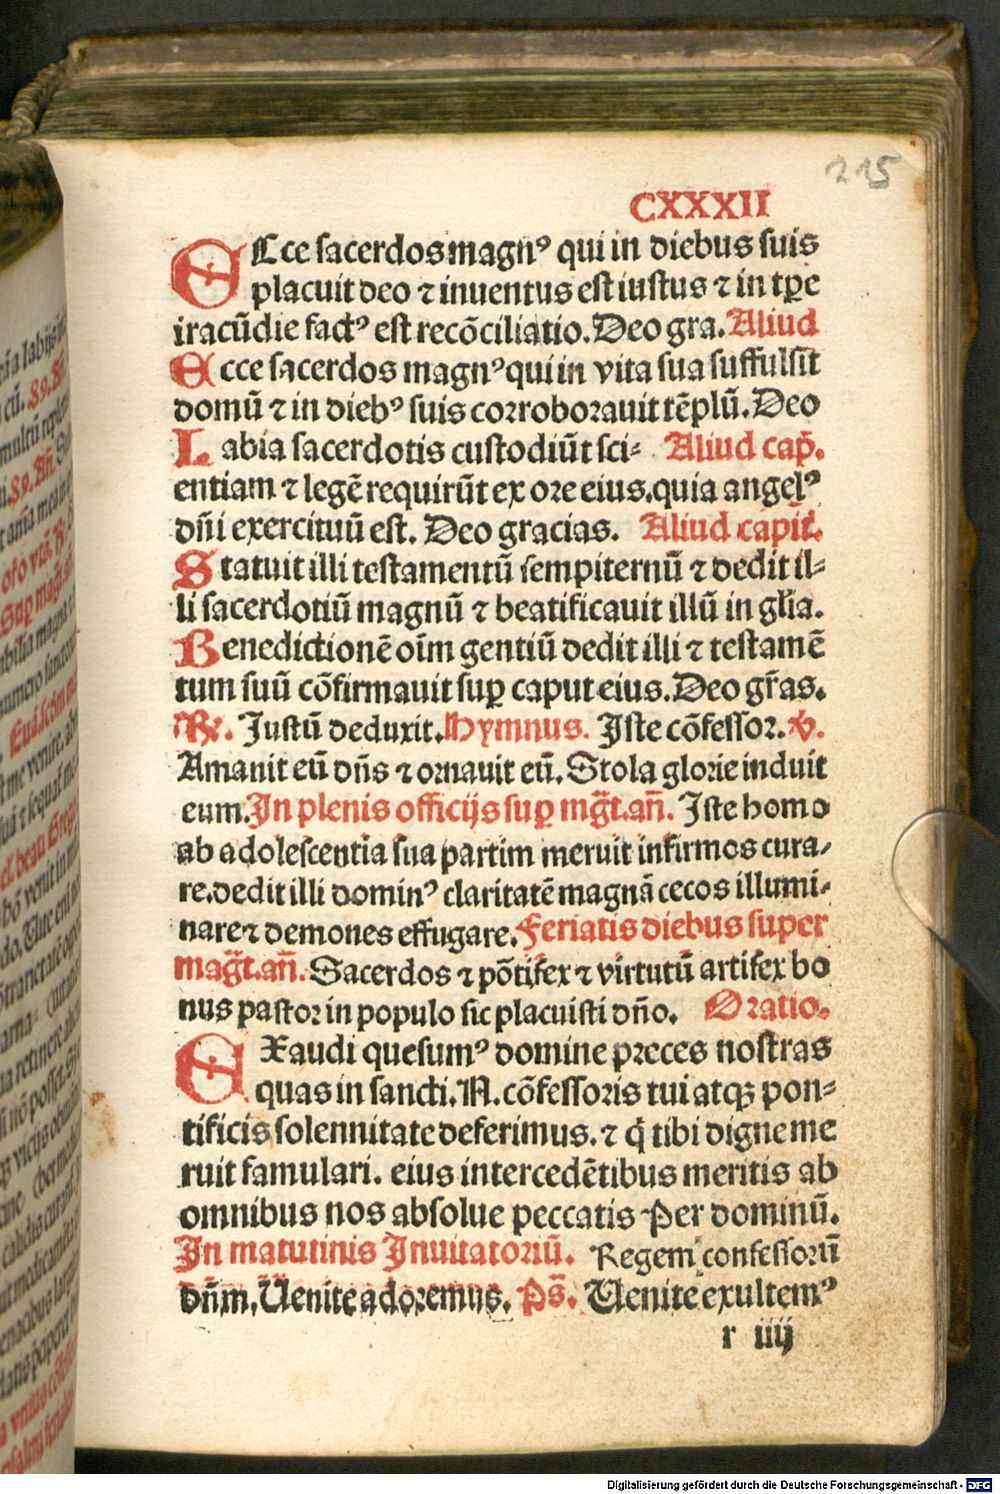 215
CXXXII
ECce sacerdos magnꝰ qui in diebus suis
placuit deo ⁊ inuentus est iustus ⁊ in tp̄e
iracūdie factꝰ est recōciliatio. Deo gra. Aliud
Ecce sacerdos magnꝰ qui in vita sua suffulsit
domū ⁊ in diebꝰ suis corroborauit tēplū. Deo
Labia sacerdotis custodiūt sci- Aliud cap̄.
entiam ⁊ legē requirūt ex ore eius. quia angelꝰ
dn̄i exercituū est. Deo gracias. Aliud capit̄.
Statuit illi testamentū sempiternū ⁊ dedit il-
li sacerdotiū magnū ⁊ beatificauit illū in glīa.
Benedictionē oīm gentiū dedit illi ⁊ testamē
tum suū cōfirmauit suꝑ caput eius. Deo gr̄as.
℟. Justū deduxit. Hymnus. Iste cōfessor. ℣.
Amauit eū dn̄s ⁊ ornauit eū. Stola glorie induit
eum. In plenis officijs suꝑ mg̅t. an̄. Iste homo
ab adolescentia sua partim meruit infirmos cura-
re. dedit illi dominꝰ claritatē magnā cecos illumi-
nare ⁊ demones effugare. Feriatis diebus super
mag̅t. an̄. Sacerdos ⁊ pōtifex ⁊ virtutū artifex bo
nus pastor in populo sic placuisti dn̄o. Oratio.
EXaudi quesumꝰ domine preces nostras
quas in sancti. N. cōfessoris tui atqꝫ pon-
tificis solennitate deferimus. ⁊ q̄ tibi digne me
ruit famulari. eius intercedētibus meritis ab
omnibus nos absolue peccatis Per dominū.
In matutinis Inuitatoriū. Regem confessorū
dn̄m. Uenite adoremus. Ps̄. Uenite exultemꝰ
r iiij
Digitalisierung gefördert durch die Deutsche Forschungsgemeinschaft - DFG